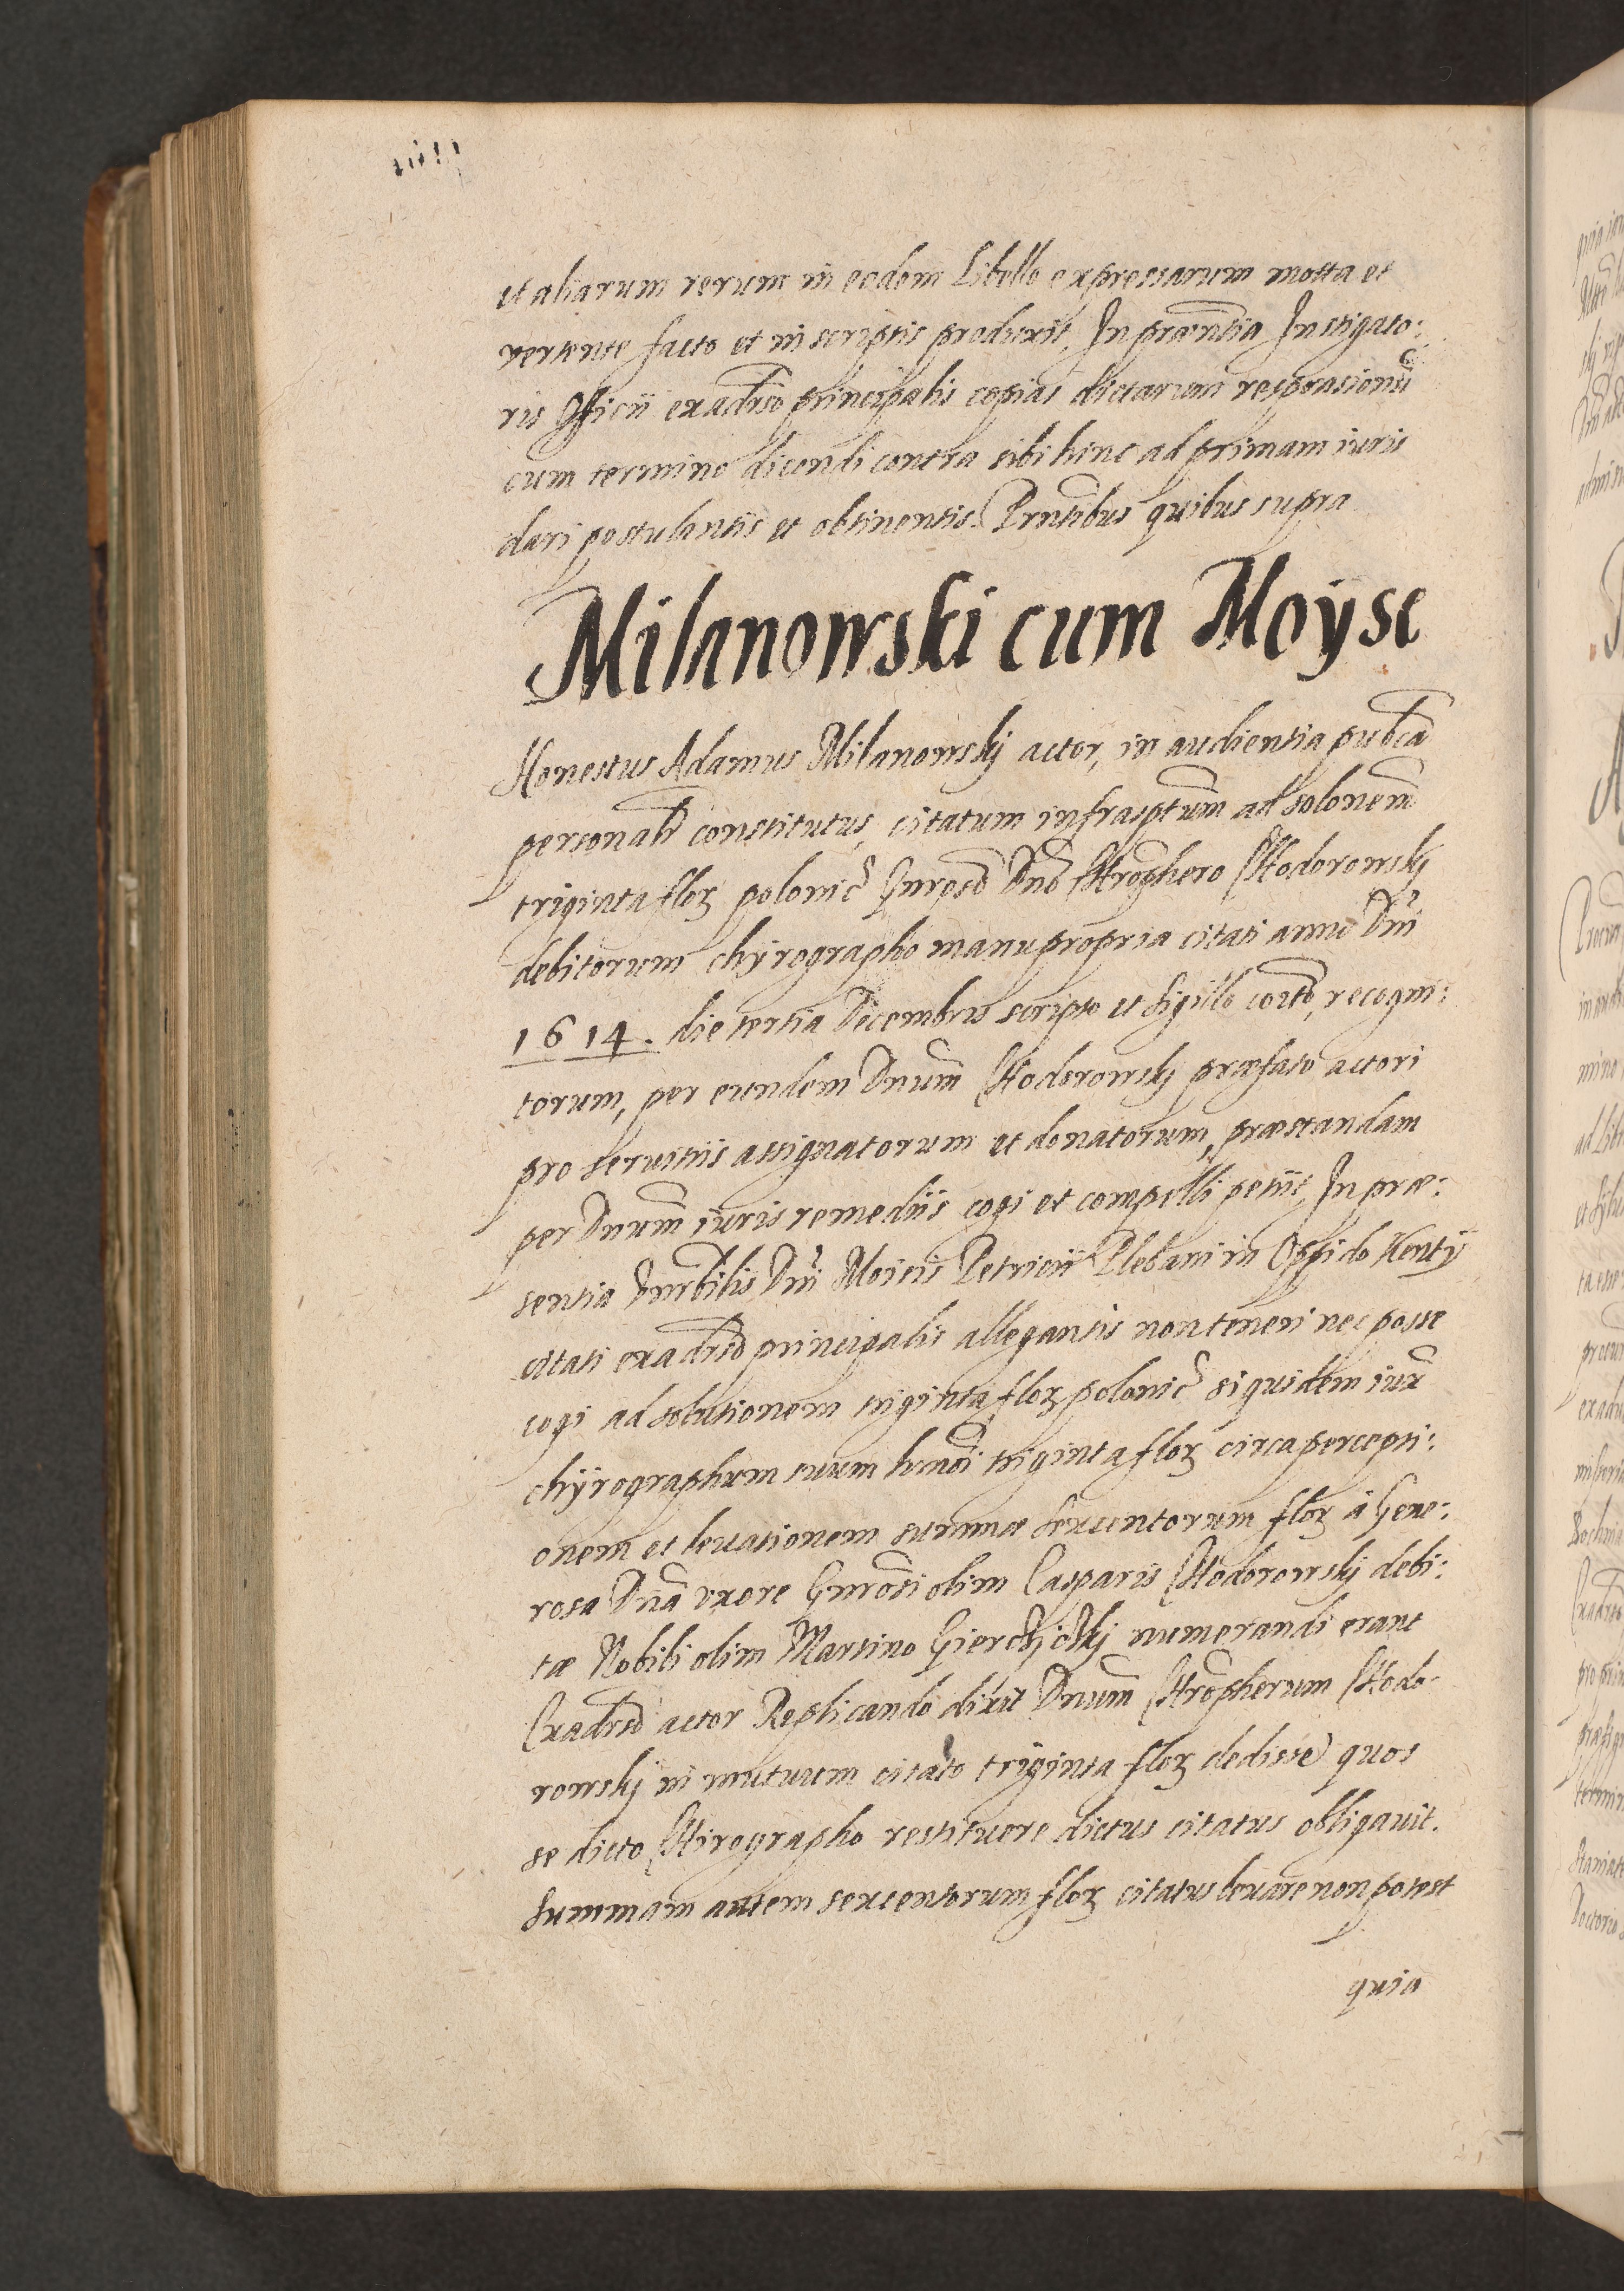 et aliarum rerum in eodem Libello expressarum motta et
vertente facto et in scriptis produxit, In præntia Instigato:
ris Officii exadrso principalis copias dictarum responsionū
cum termino dicendi contra sibi hinc ad primam iuris
dari postulantis et obtinentis. Prntibus quibus supra
Milanowski cum Moyse
Honestus Adamus Milanowskj actor, in audientia pubca
personalr constitutus, citatum infrasptum ad solonem
triginta flor polonic Gnroso Dno Chrophero Chodorowskj
debitorum chyrographo manu propria citati anno Dni
1614. die tertia Decembris scripto et sigillo coito, recogni:
torum, per eundem Dnum Chodorowskj præfato actori
pro servitiis assignatorum et donatorum, præstandam
per Dnum iuris remediis cogi et compelli petiit, In præ:
sentia Vnrbilis Dni Moisis Petricii Plebani in Oppido Kenty
citati exadrso principalis allegantis non teneri nec posse
cogi ad solutionem triginta flor polonic siquidem iux
chyrographum suum hmoi triginta flor circa percepti:
onem et levationem summæ sexcentorum flor à Gene:
rosa Dna uxore Gnrosi olim Casparis Chodorowskj debi:
tæ Nobili olim Martino numerandi erant
Exadrso actor Replicando dixit Dnum Chropherum Chodo-
rowskj in mutuum citato triginta flor dedisse quos
se dicto Chirographo restituere dictus citatus obligavit.
Summam autem sexcentorum flor citatus levare non potest
quia